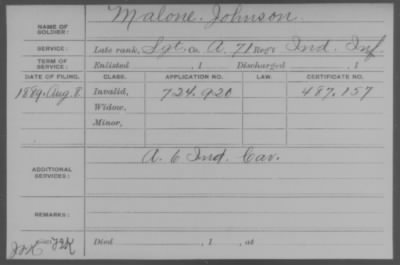 NAME OF SOLDIER: Malone, Johnson
SERVICE: Late rank, Sgt. Co. A, 71 Reg't Ind. Inf.
TERM OF SERVICE: Enlisted , 1 Discharged , 1
DATE OF FILING. CLASS. APPLICATION NO. LAW. CERTIFICATE NO.
1889. Aug. 8. Invalid, 724.920 487.157
Widow,
Minor,
ADDITIONAL SERVICES: A. 6 Ind. Cav.
REMARKS:
Died , 1 , at